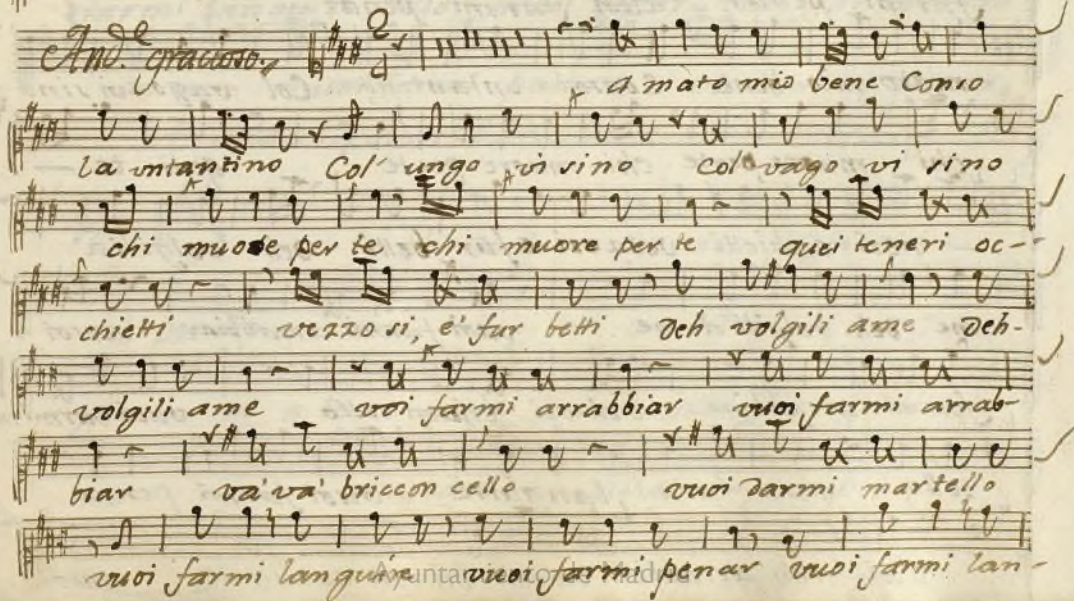 And.e gracioso.
amato mio bene Conso
la untantino Col' ungo visino col' vago vi sino
chi muore per te chi muore per te quei teneri oc-
chietti vezzo si, e' fur betti deh volgili ame deh-
volgili ame voi farmi arrabbiar vuoi farmi arrab-
biar va' va' briccon cello vuoi darmi martello
vuoi farmi languire vuoi farmi penar vuoi farmi lan-
Ayuntamiento de Madrid